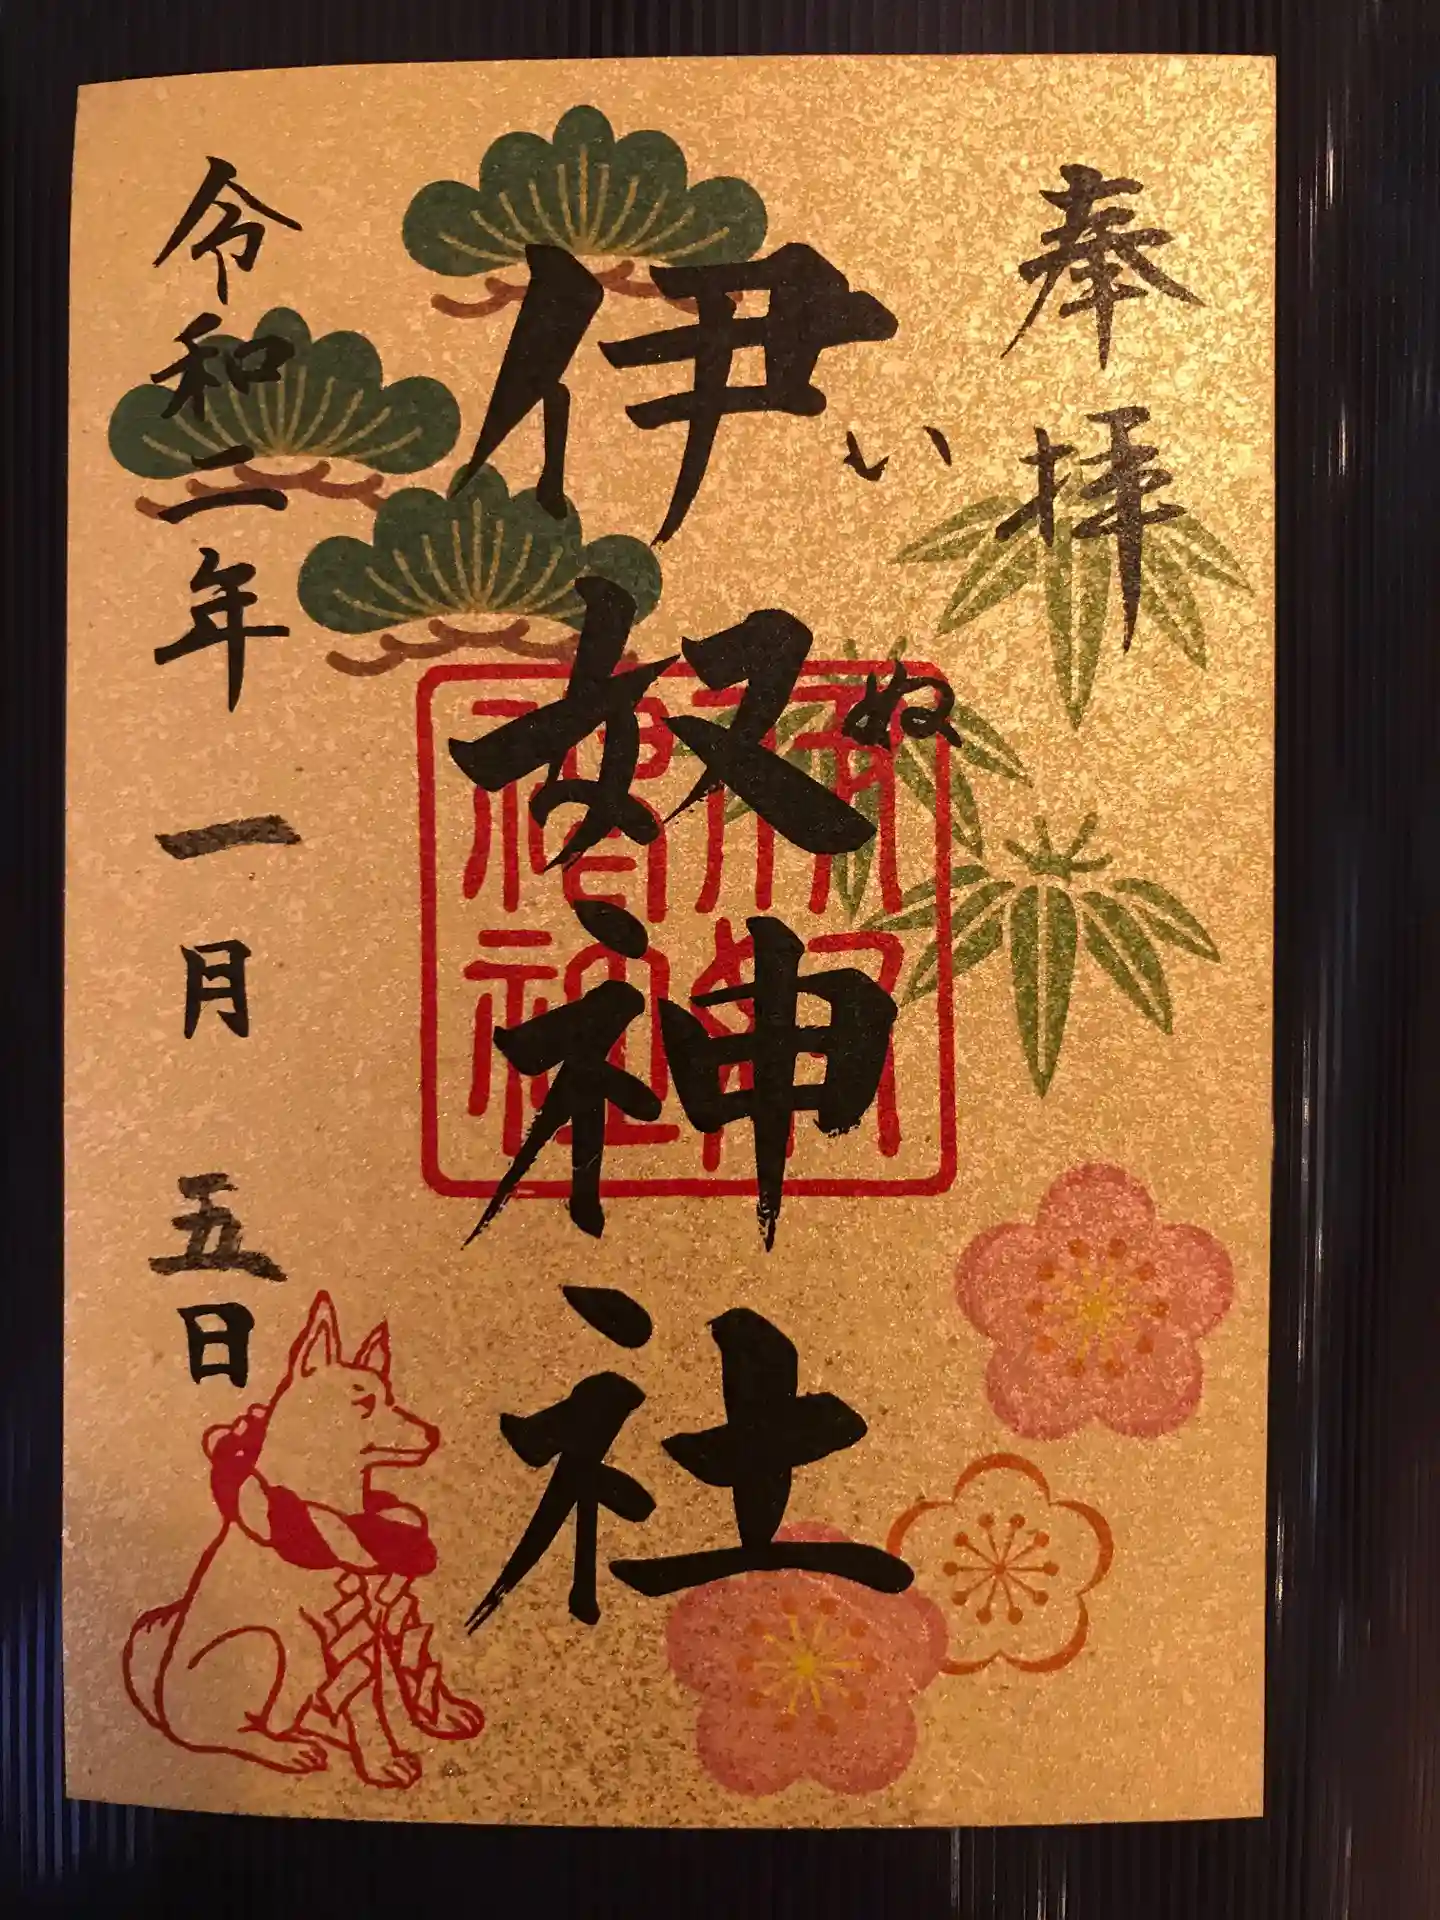 奉拝
伊奴神社
いぬ
令和二年一月五日